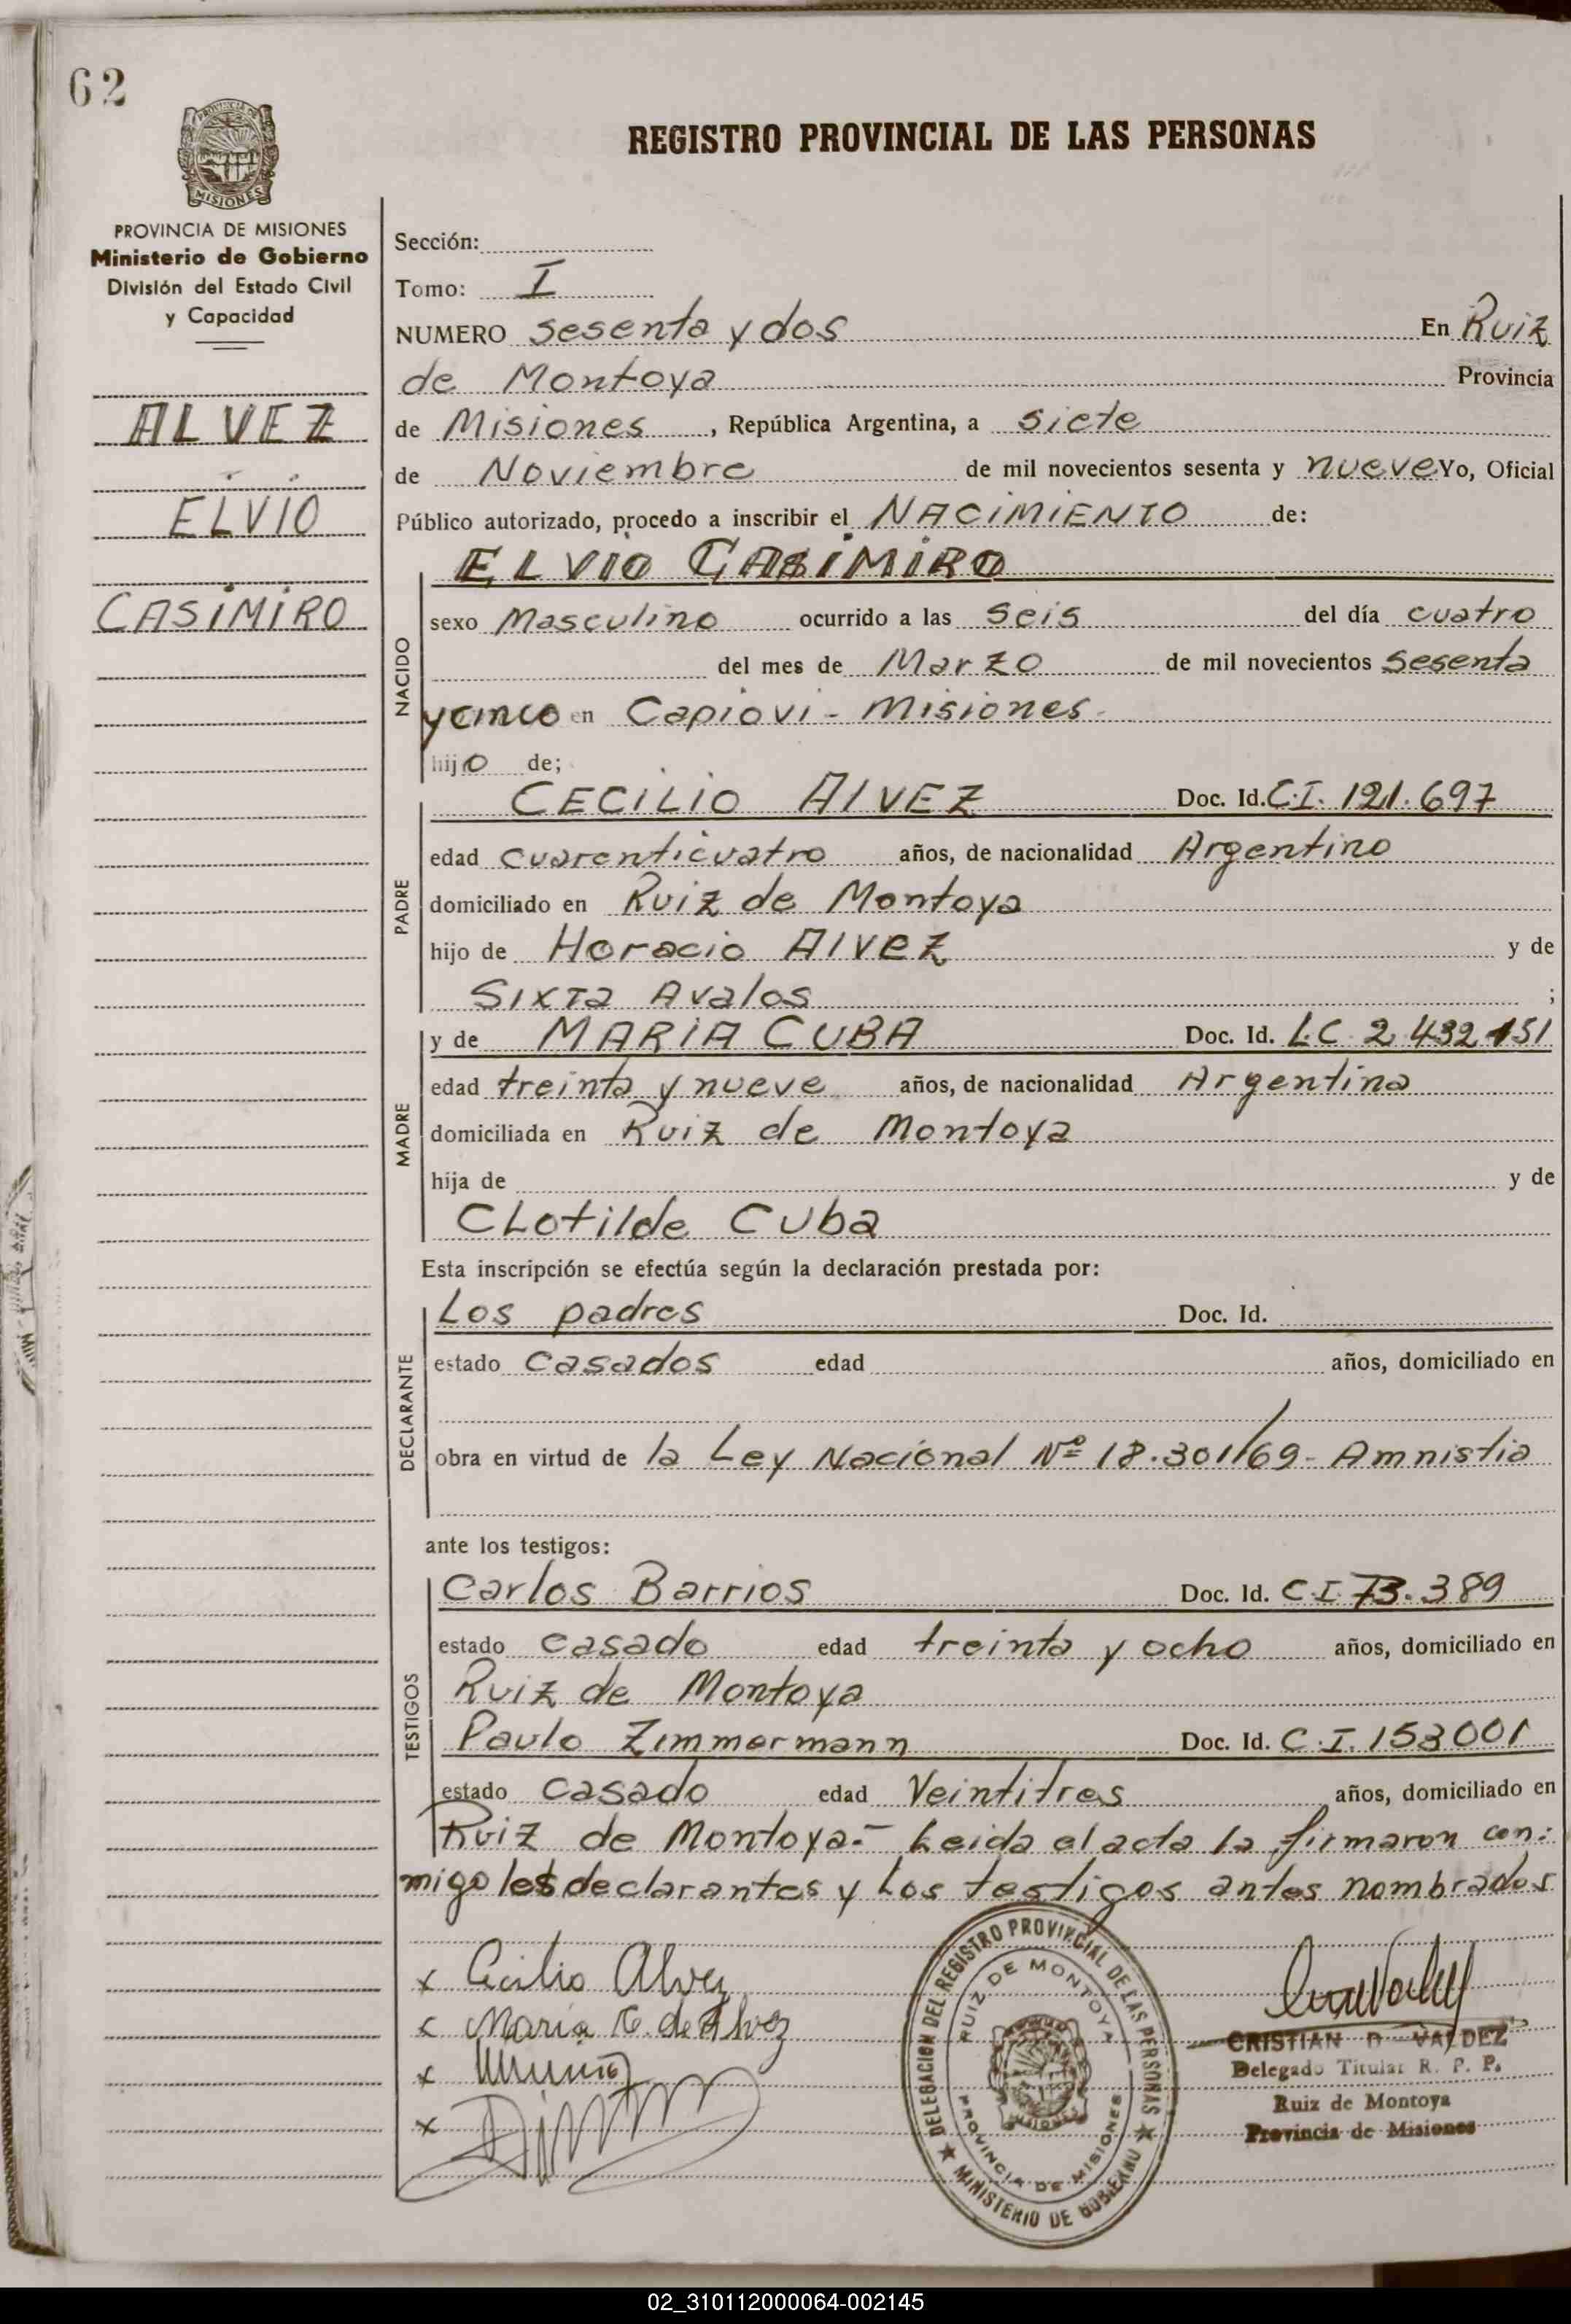 62
PROVINCIA DE MISIONES
MISIONES
PROVINCIA DE MISIONES
Ministerio de Gobierno
División del Estado Civil
y Capacidad
ALVEZ
ELVIO
CASIMIRO
REGISTRO PROVINCIAL DE LAS PERSONAS
Sección:
Tomo: I
NUMERO sesenta y dos En Ruiz
de Montoya Provincia
de Misiones , República Argentina, a siete
de Noviembre de mil novecientos sesenta y nueve Yo, Oficial
Público autorizado, procedo a inscribir el NACIMIENTO de:
ELVIO CASIMIRO
NACIDO
sexo Masculino ocurrido a las seis del día cuatro
del mes de Marzo de mil novecientos sesenta
y cinco en Capiovi - Misiones -
hijo de;
PADRE
CECILIO AlVEZ Doc. Id. C.I. 121.697
edad cuarenticuatro años, de nacionalidad Argentino
domiciliado en Ruiz de Montoya
hijo de Horacio Alvez y de
Sixta Avalos ;
MADRE
y de MARIA CUBA Doc. Id. L.C 2.432.151
edad treinta y nueve años, de nacionalidad Argentina
domiciliada en Ruiz de Montoya
hija de y de
CLotilde Cuba
Esta inscripción se efectúa según la declaración prestada por:
DECLARANTE
Los padres Doc. Id.
estado casados edad años, domiciliado en
obra en virtud de la Ley Nacional Nº 18.301/69- Amnistia
ante los testigos:
TESTIGOS
Carlos Barrios Doc. Id. C.I. 73.389
estado casado edad treinta y ocho años, domiciliado en
Ruiz de Montoya
Paulo Zimmermann Doc. Id. C.I. 153001
estado casado edad Veintitres años, domiciliado en
Ruiz de Montoya.- Leida el acta la firmaron con-
migo los declarantes y Los testigos antes nombrados
x Cecilio Alvez
x Maria C. de Alvez
x
x
DELEGACION DEL REGISTRO PROVINCIAL DE LAS PERSONAS
MINISTERIO DE GOBIERNO
RUIZ DE MONTOYA
PROVINCIA DE MISIONES
CRISTIAN D VALDEZ
Delegado Titular R. P. P.
Ruiz de Montoya
Provincia de Misiones
02_310112000064-002145